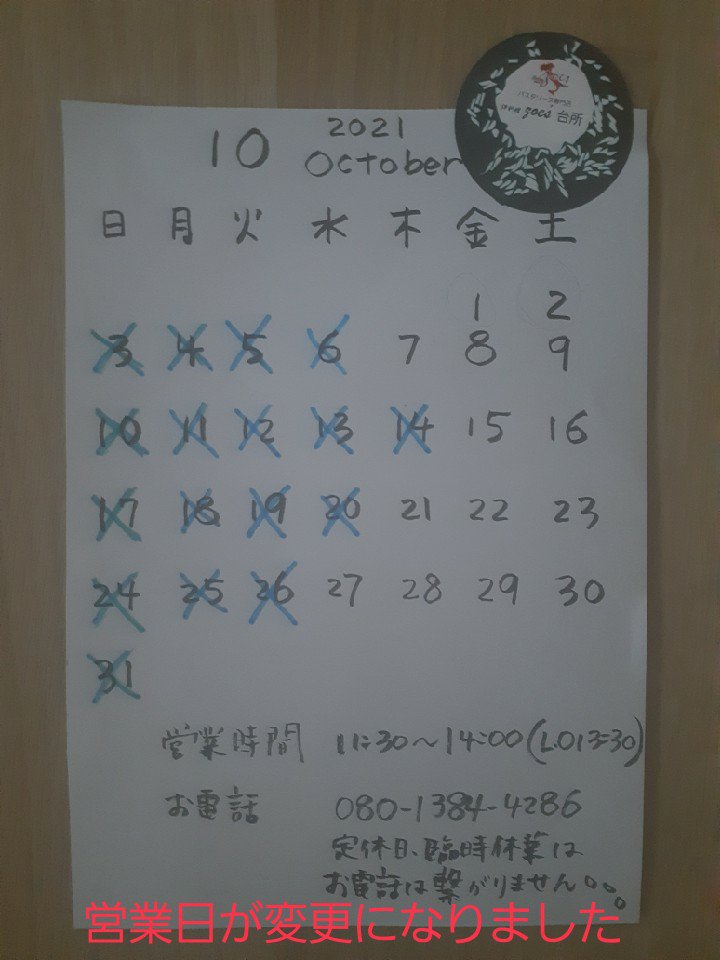 2021
10 October
パスタソース専門店
zoes 台所
日 月 火 水 木 金 土
1 2
3 4 5 6 7 8 9
10 11 12 13 14 15 16
17 18 19 20 21 22 23
24 25 26 27 28 29 30
31
営業時間 11:30~14:00(L.O13:30)
お電話 080-1384-4286
定休日、臨時休業は
お電話は繋がりません。。。
営業日が変更になりました